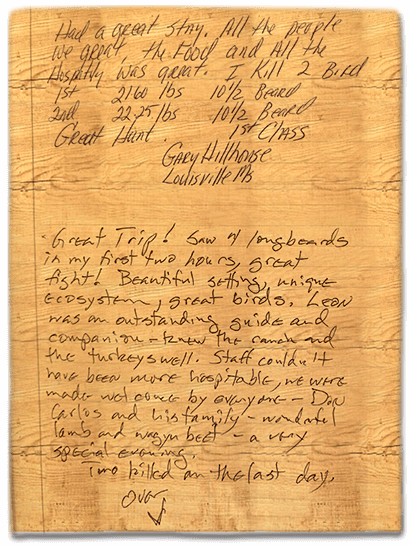 Had a great stay. All the people
we great, the Food and All the
Hospitly was great. I Kill 2 Bird
1st 21.60 lbs 10 1/2 Beard
2nd 22.25 lbs 10 1/2 Beard
Great Hunt. 1st Class
Gary Hillhouse
Louisville Ms
Great Trip! Saw 4 longbeards
in my first two hours, great
fight! Beautiful setting, unique
ecosystem, great birds. Leon
was an outstanding guide and
companion - knew the ranch and
the turkeys well. Staff couldn't
have been more hospitable, we were
made welcome by everyone - Don
Carlos and his family - wonderful
lamb and wagyu beef - a very
special evening.
Two killed on the last day.
over